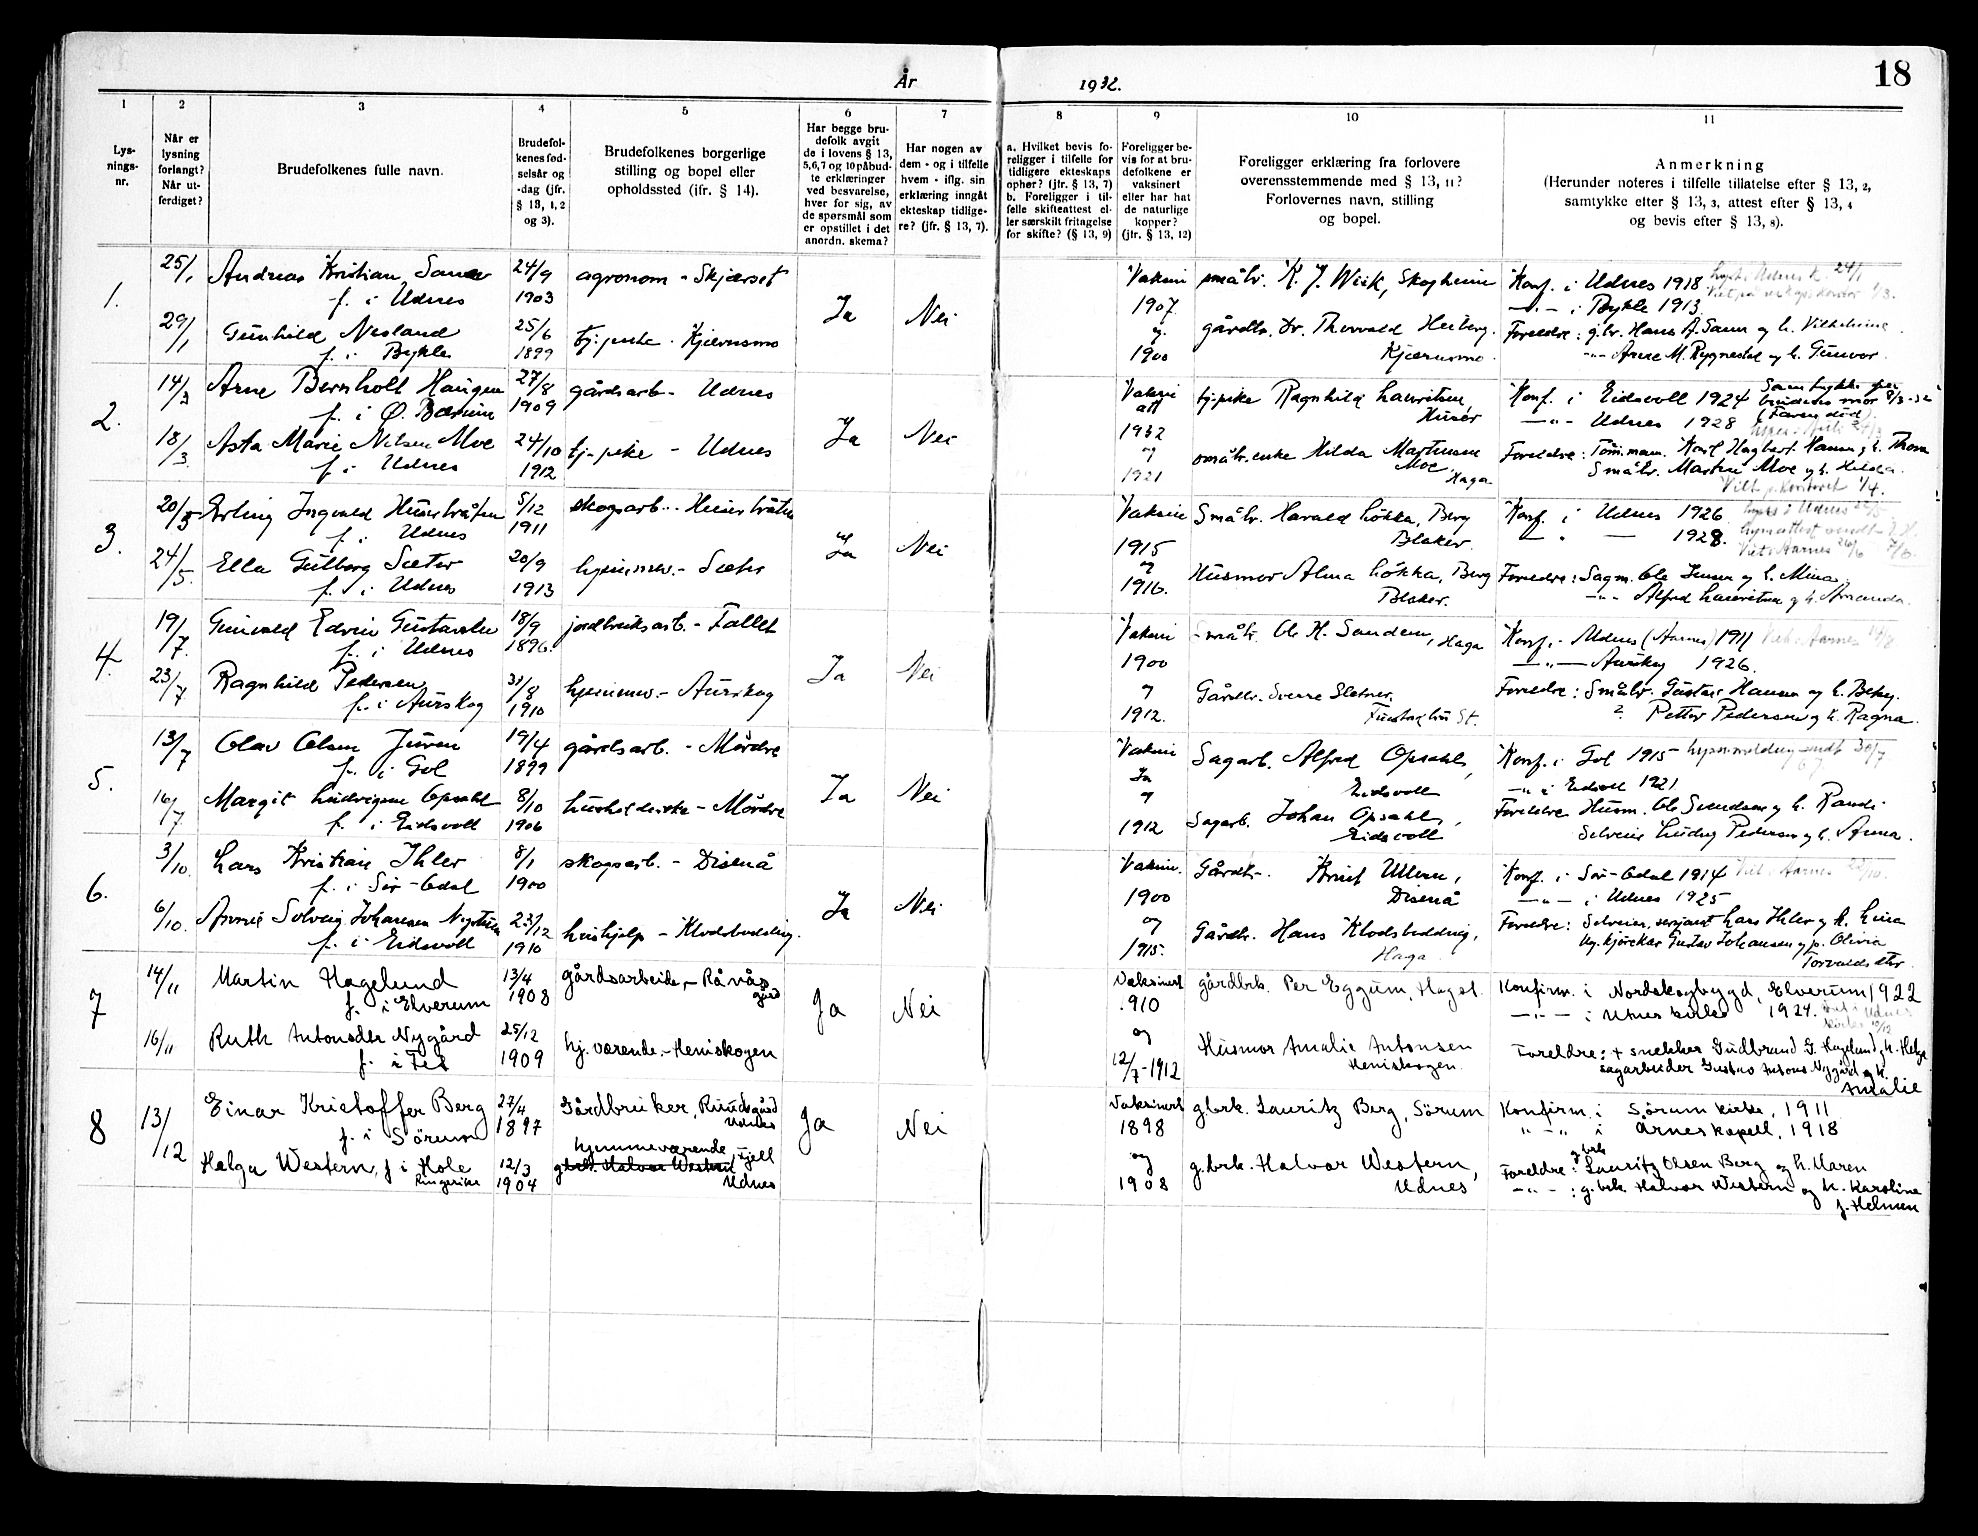 År 1932.
18
1
2
3
4
5
6
7
8
9
10
11
Lys-
nings-
nr.
Når er
lysning
forlangt?
Når ut-
ferdiget?
Brudefolkenes fulle navn.
Brudefol-
kenes fød-
selsår og
-dag (jfr.
§ 13, 1, 2
og 3).
Brudefolkenes borgerlige
stilling og bopel eller
opholdssted (jfr. § 14).
Har begge bru-
defolk avgit
de i lovens § 13,
5,6,7 og 10 påbud-
te erklæringer
ved besvarelse,
hver for sig, av
de spørsmål som
er opstillet i det
anordn. skema?
Har nogen av
dem - og i tilfelle
hvem - iflg. sin
erklæring inngåt
ekteskap tidlige-
re? (jfr. § 13, 7).
a. Hvilket bevis fo-
religger i tilfelle for
tidligere ekteskaps
ophør? (jfr. § 13, 7)
b. Foreligger i til-
felle skifteattest el-
ler særskilt fritagelse
for skifte? (§ 13, 9)
Foreligger be-
vis for at bru-
defolkene er
vaksinert
eller har hat
de naturlige
kopper?
(jfr. § 13, 12)
Foreligger erklæring fra forlovere
overensstemmende med § 13, 11?
Forlovernes navn, stilling
og bopel.
Anmerkning
(Herunder noteres i tilfelle tillatelse efter § 13, 2,
samtykke efter § 13, 3, attest efter § 13, 4
og bevis efter § 13, 8).
1.
25/1
Andreas Kristian
f. i Udnes
24/9
1903
agronom - Skjærset
29/1
Gunhild Nesland
f. i Bykle
25/6
1899
tj.pike - Kjærnsmo
Ja
Nei
Vaksin
1907.
og
1900
småbr. K. J. Wiik, Skogheim
gårdbr. Dr. Thorvald Heiberg,
Kjærnsmo.
Konf. i Udnes 1918
-"- i Bykle 1913
Foreldre: g.br. Hans A. Sann og h. Vilhelmine
-"- Arne M. Rygnestad og h. Gunvor.
2.
14/3
Arne Bernholt Haugen
f. i Ø. Bærum
27/8
1909
gårdsarb. - Udnes
18/3
Asta Marie Nilsen Moe
f. i Udnes
24/10
1912
tj.pike - Udnes
Ja
Nei
Vaksin
att
1932
og
1921
tj.pike Ragnhild Lauritsen,
Huser
småbr.enke Hilda Martinsen
Moe, Haga
Konf. i Eidsvoll 1924
-"- Udnes 1928
Samtykke fra
brudens mor
(Faren död).
Foreldre: Tömmerm. Karl Hagbart Hansen og h. Thora
Småbr. Martin Moe og h. Hilda.
Viet p. kontoret 1/4.
3.
20/5
Erling Ingvald Huserbråten
f. i Udnes
5/12
1911
skogsarb. - Huserbråten
24/5
Ella Gulborg Sæter
f. i Udnes
20/9
1913
hjemmev. - Sæter
Ja
Nei
Vaksin
1915
og
1916.
Småbr. Harald Lökka, Berg
Blaker.
Husmor Alma Lökka, Berg
Blaker.
Konf. i Udnes 1926
- " - 1928.
Viet i Aarnes 26/6
Foreldre: Sagm. Ole Jensen og h. Mina,
-"- Alfred Lauritsen og h. Amanda.
4.
19/7.
Gunvald Edvin Gustavsen
f. i Udnes
18/9
1896.
jordbruksarb. - Fallet
23/7
Ragnhild Pedersen
f. i Aurskog
31/8
1910
hjemmev. - Aurskog
Ja
Nei
Vaksin
1900
og
1912.
Småbr. Ole H. Sanden, Haga
Gårdbr. Sverre Slatner,
Konf. i Udnes (Aarnes) 1911
-"- Aurskog 1926.
Viet i Aarnes 14/8
Foreldre: Småbr. Gustav Hansen og h. Betsy.
? Petter Pedersen og h. Ragna.
5.
13/7
Olav Olsen Juven
f. i Gol
19/4
1899
gårdsarb. - Mördre
16/7
Margit Ludvigsen Opsahl
f. i Eidsvoll
8/10
1906
husholderske - Mördre
Ja
Nei
Vaksin
Ja
og
1912
Sagarb. Alfred Opsahl,
Eidsvoll
Sagarb. Johan Opsahl,
Eidsvoll
Konf. i Gol 1915
-"- i Eidsvoll 1921
Foreldre Husm. Ole Svendsen og h. Randi
Selveier Ludvig Pedersen og h. Anna.
6.
3/10.
Lars Kristian Ihler
f. i Sör-Odal
8/1
1900
skogsarb. - Disenå
6/10.
Annie Solveig Johansen Nystuen
f. i Eidsvoll
23/12
1910
hushjelp - Klodsbodding.
Ja
Nei
Vaksin.
1900
og
1915.
Gårdbr. Knut Ullern,
Disenå
Gårdbr. Hans Klodsbodding,
Haga
Konf. i Sör-Odal 1914
-"- i Udnes 1925
Foreldre: Selveier, sersjant Lars Ihler og h. Lina
Vg.kjörekar Gustav Johansen og p. Olivia
Torvaldsdtr.
7
14/11
Martin Hagelund
f. i Elverum
13/4
1908
gårdsarbeider - Rånås
gård
16/11
Ruth Antonsdtr Nygård
f. i Fet
25/12
1909
hj.værende - Heniskogen
Ja
Nei
Vaksinert
1910
og
12/7-1912
gårdbrk. Per Eggum, Hagst.
Husmor Amalie Antonsen
Heniskogen
Konfirm. i Nordskogbygd, Elverum 1922
-"- i Utnes kirke 1924.
Foreldre: + snekker Gudbrand G. Hagelund, h. Helga
sagarbeider Gustav Antons. Nygård og h.
Amalie
8
13/12
Einar Kristoffer Berg
f. i Sörum
27/4
1897
Gårdbruker, Rundsgård
Udnes
Helga Western, f i Hole
Ringerike
12/3
1904
hjemmeværende
g.brk. Halvor Western Fjell
Udnes
Ja
Nei
Vaksinert
1898
og
1908
g.brk. Lauritz Berg, Sörum
g.brk. Halvor Western,
Udnes
Konfirm. i Sörum kirke, 1911
" -"- i Årnes kapell, 1918
g.brk
Foreldre: Lauritz Olsen Berg og h. Maren
-"- : g.brk Halvor Western og h. Karoline
f. Helmen